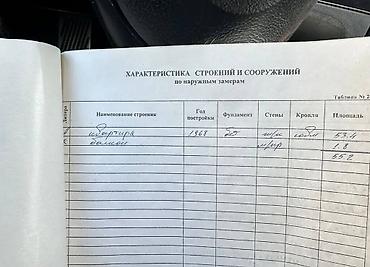 ХАРАКТЕРИСТИКА СТРОЕНИЙ И СООРУЖЕНИЙ
по наружным замерам
Таблица № 2
Литера Наименование строения Год постройки Фундамент Стены Кровля Площадь
квартира 1968 ж/б 53.4
балкон 1.8
55.2